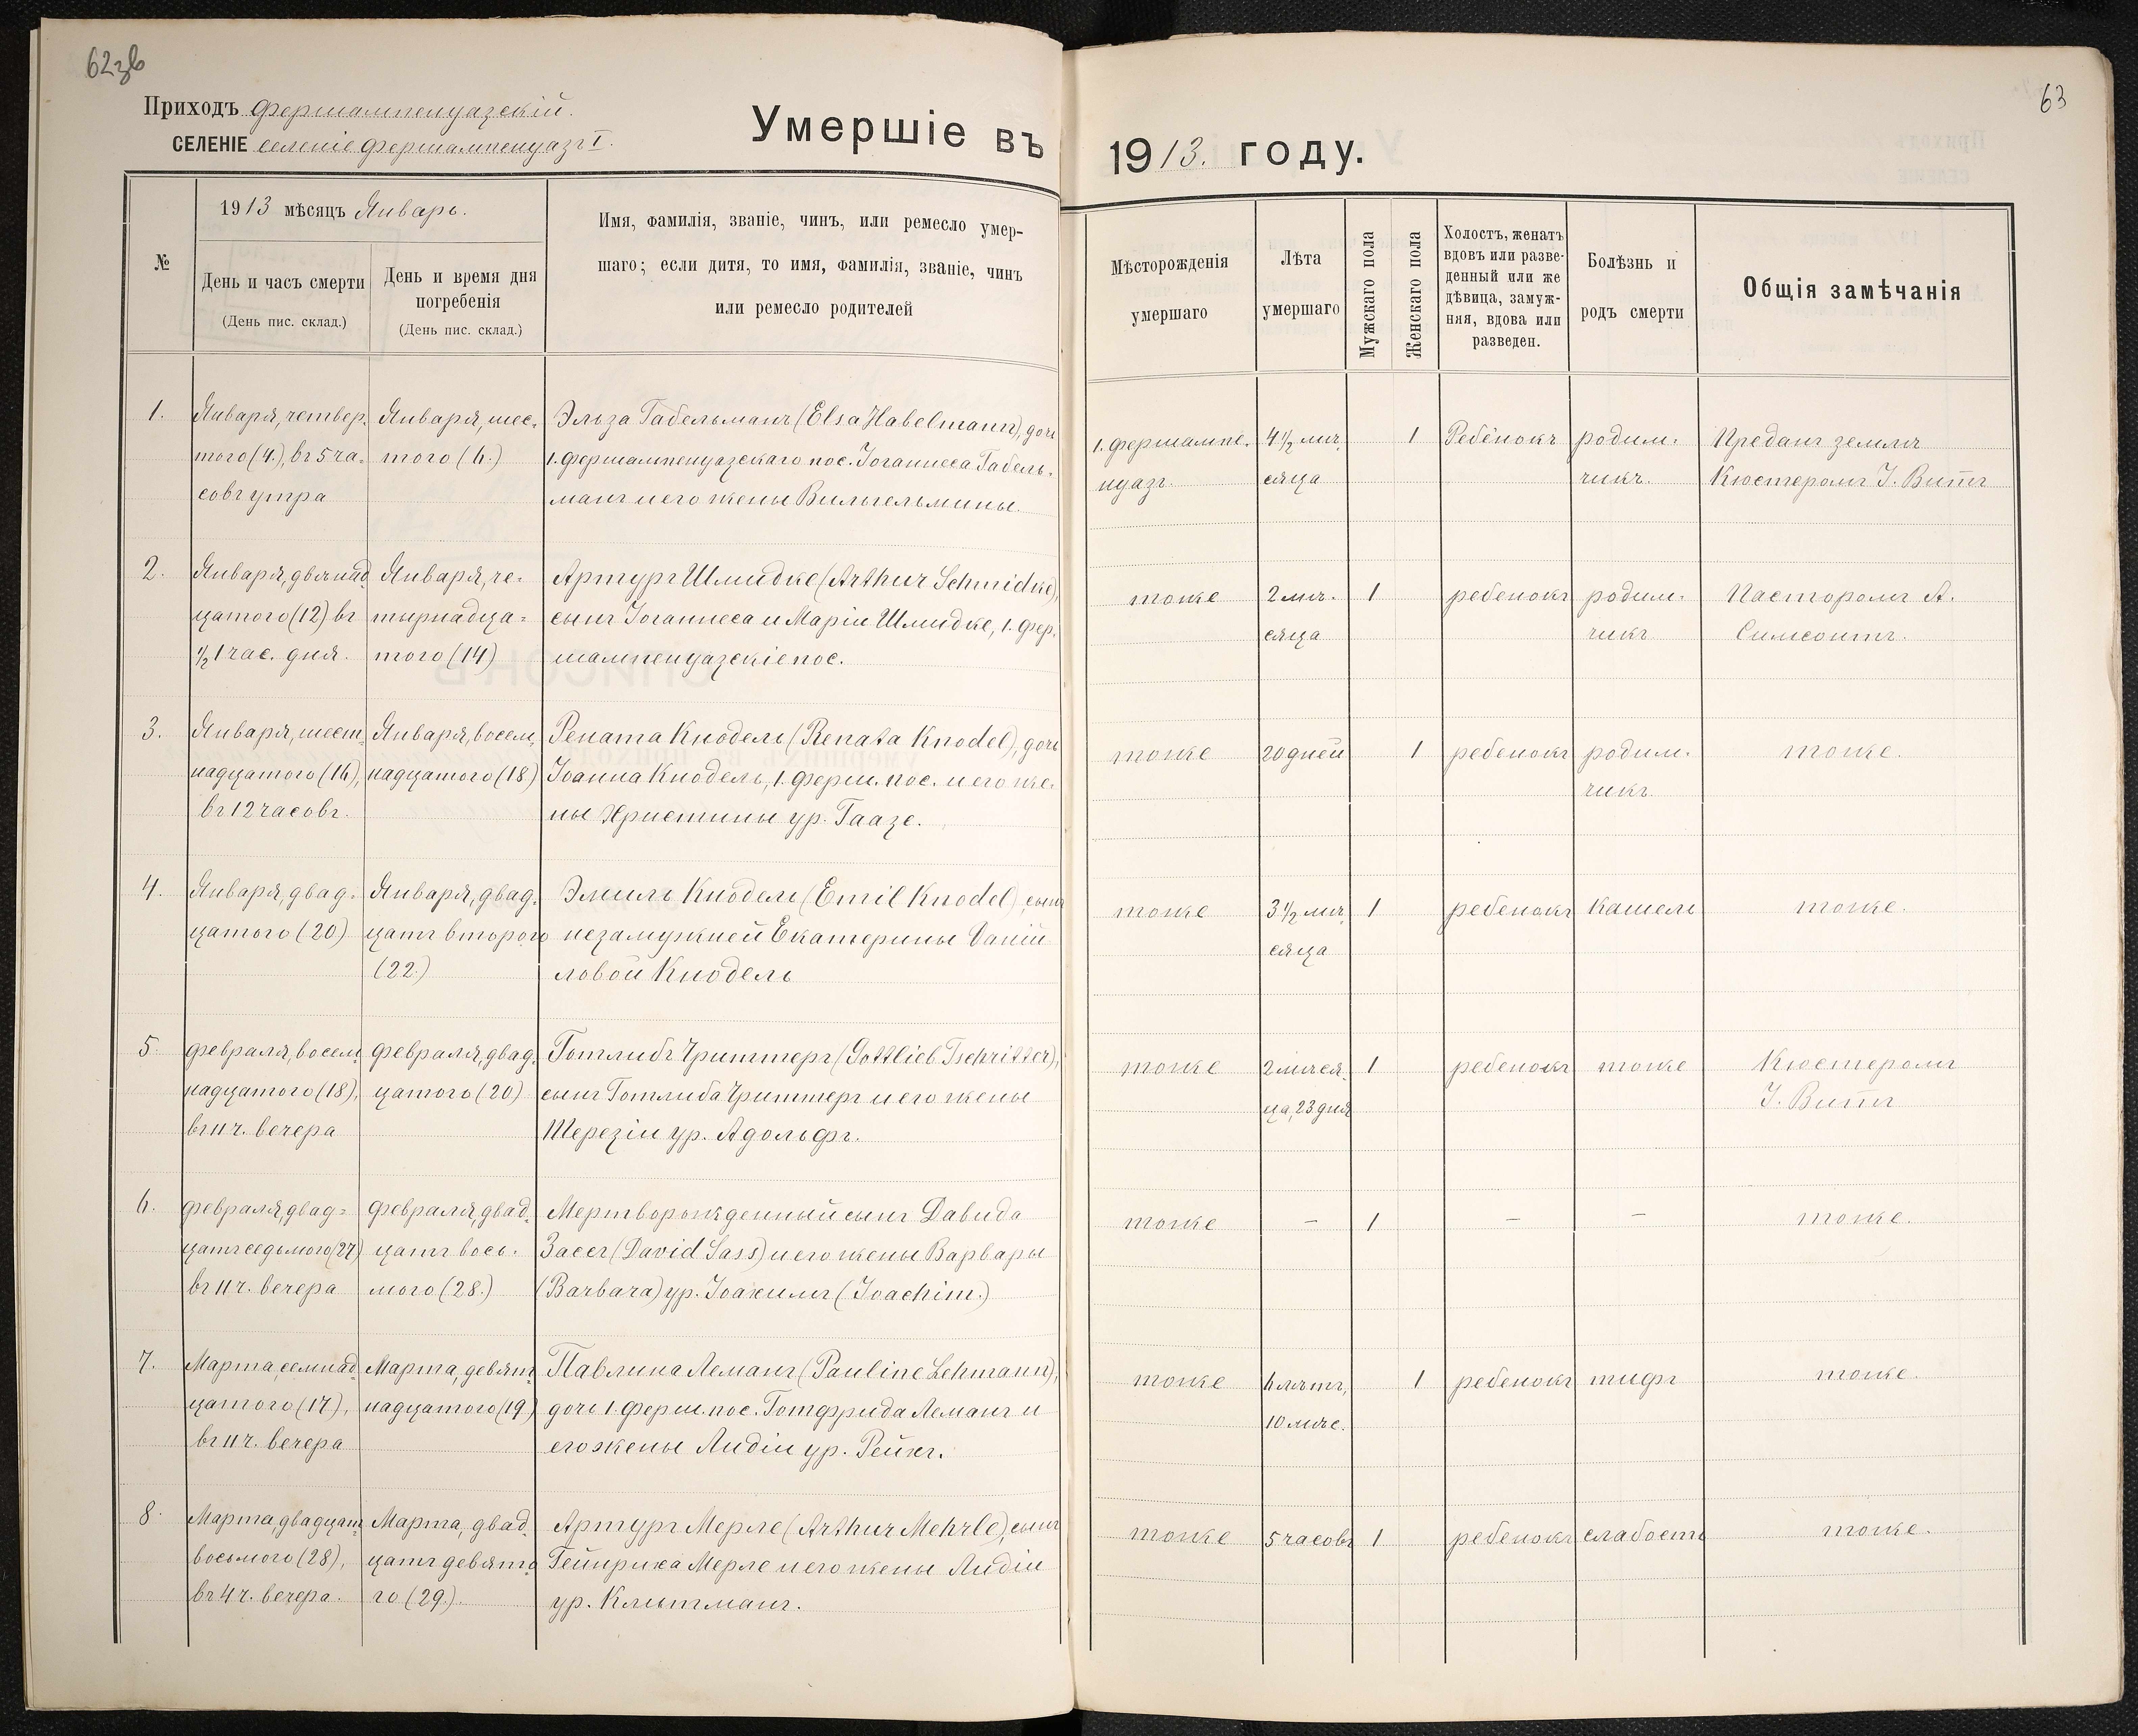 62зв
63
Приходъ Фершампенуазскій.
СЕЛЕНІЕ селеніе Фершампенуазъ I.
Умершіе въ 1913. году.
№
1913 мѣсяцъ Январь.
День и часъ смерти
(День пис. склад.)
День и время дня
погребенія
(День пис. склад.)
Имя, фамилія, званіе, чинъ, или ремесло умер-
шаго; если дитя, то имя, фамилія, званіе, чинъ
или ремесло родителей
Мѣсторожденія
умершаго
Лѣта
умершаго
Мужскаго пола
Женскаго пола
Холостъ, женатъ
вдовъ или разве-
денный или же
дѣвица, замуж-
няя, вдова или
разведен.
Болѣзнь и
родъ смерти
Общія замѣчанія
1.
Января, четвер-
таго (4.), въ 5 ча-
совъ утра
Января, шес-
того (6.)
Эльза Габельманъ (Elsa Habelmann), дочь
1. Фершампенуазскаго пос. Іоганнеса Габель-
манъ и его жены Вильгельмины.
1. Фершампе-
нуазъ
4 1/2 мѣ-
сяца
1
Ребёнокъ
родим-
чикъ.
Преданъ землѣ
Кюстеромъ І. Виттъ
2.
Января, двѣнад-
цатого (12) въ
1/2 1 час. дня.
Января, че-
тырнадца-
того (14)
Артуръ Шмидке (Arthur Schmidke),
сынъ Іоганнеса и Маріи Шмидке, 1. Фер-
шампенуазскіе пос.
тоже
2 мѣ-
сяца
1
ребенокъ
родим-
чикъ
Пасторомъ А.
Симсонтъ.
3.
Января, шест-
надцатого (16),
въ 12 часовъ.
Января, восем-
надцатого (18)
Рената Кнодель (Renata Knodel), дочь
Іоанна Кнодель, 1. Ферш. пос. и его же-
ны Христины ур. Гаазе.
тоже
20 дней
1
ребенокъ
родим-
чикъ
тоже.
4.
Января, двад-
цатого (20)
Января, двад-
цать второго
(22.)
Эмиль Кнодель (Emil Knodel), сынъ
незамужней Екатерины Даніи
ловой Кнодель
тоже
3 1/2 мѣ-
сяца
1
ребенокъ
кашель
тоже.
5.
Февраля, восем-
надцатого (18),
въ 11 ч. вечера
Февраля, двад-
цатого (20)
Готлибъ Чриттеръ (Gottlieb Tschritter),
сынъ Готлиба Чриттеръ и его жены
Терезіи ур. Адольфъ.
тоже
2 мѣся-
ца, 23 дня
1
ребенокъ
тоже
Кюстеромъ
І. Виттъ
6.
Февраля, двад-
цать седьмого (27)
въ 11 ч. вечера
Февраля, двад-
цать вось-
мого (28.)
Мертворожденный сынъ Давида
Зассъ (David Sass) и его жены Варвары
(Barbara) ур. Іоахимъ (Joachim.)
тоже
—
1
—
—
тоже.
7.
Марта, семнад-
цатого (17),
въ 11 ч. вечера
Марта, девят-
надцатого (19)
Павлина Леманъ (Pauline Lehmann),
дочь 1. Ферш. пос. Готфрида Леманъ и
его жены Лидіи ур. Рейхъ.
тоже
6 лѣтъ,
10 мѣс.
1
ребенокъ
тифъ
тоже.
8.
Марта, двадцать
восьмого (28),
въ 4 ч. вечера.
Марта, двад-
цать девято-
го (29).
Артуръ Мерле (Arthur Mehrle), сынъ
Гейнриха Мерле и его жены Лидіи
ур. Клитманъ.
тоже
5 часовъ
1
ребенокъ
слабость
тоже.